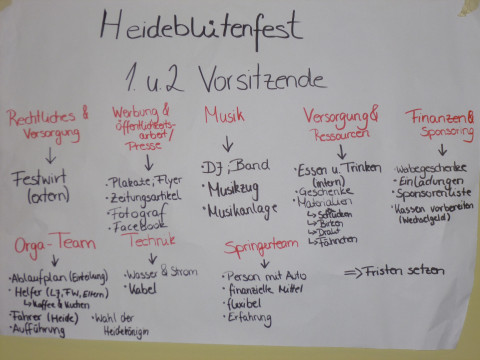 Heideblütenfest
1. u. 2 Vorsitzende
Rechtliches &
Versorgung
↓
Festwirt
(extern)
Werbung &
öffentlichkeits-
arbeit/
Presse
↓
• Plakate, Flyer
• Zeitungsartikel
• Fotograf
• Facebook
Musik
↓
DJ; Band
• Musikzug
• Musikanlage
Versorgung &
Ressourcen
↓
• Essen u. Trinken
(intern)
• Geschenke
• Materialien
↳
↳ Birken
↳ Draht
↳ Fähnchen
Finanzen &
Sponsoring
↓
• Einladungen
• Sponsorenliste
• Kassen vorbereiten
(Wechselgeld)
Orga-Team
↓
• Ablaufplan (Einteilung)
• Helfer (LJ, FW, Eltern)
↳ Kaffee & Kuchen
• Fahrer (Heide)
• Aufführung
• Wahl der
Heidekönigin
Technik
↓
• Wasser & Strom
• Kabel
Springerteam
↓
• Person mit Auto
• finanzielle Mittel
• flexibel
• Erfahrung
⇒ Fristen setzen